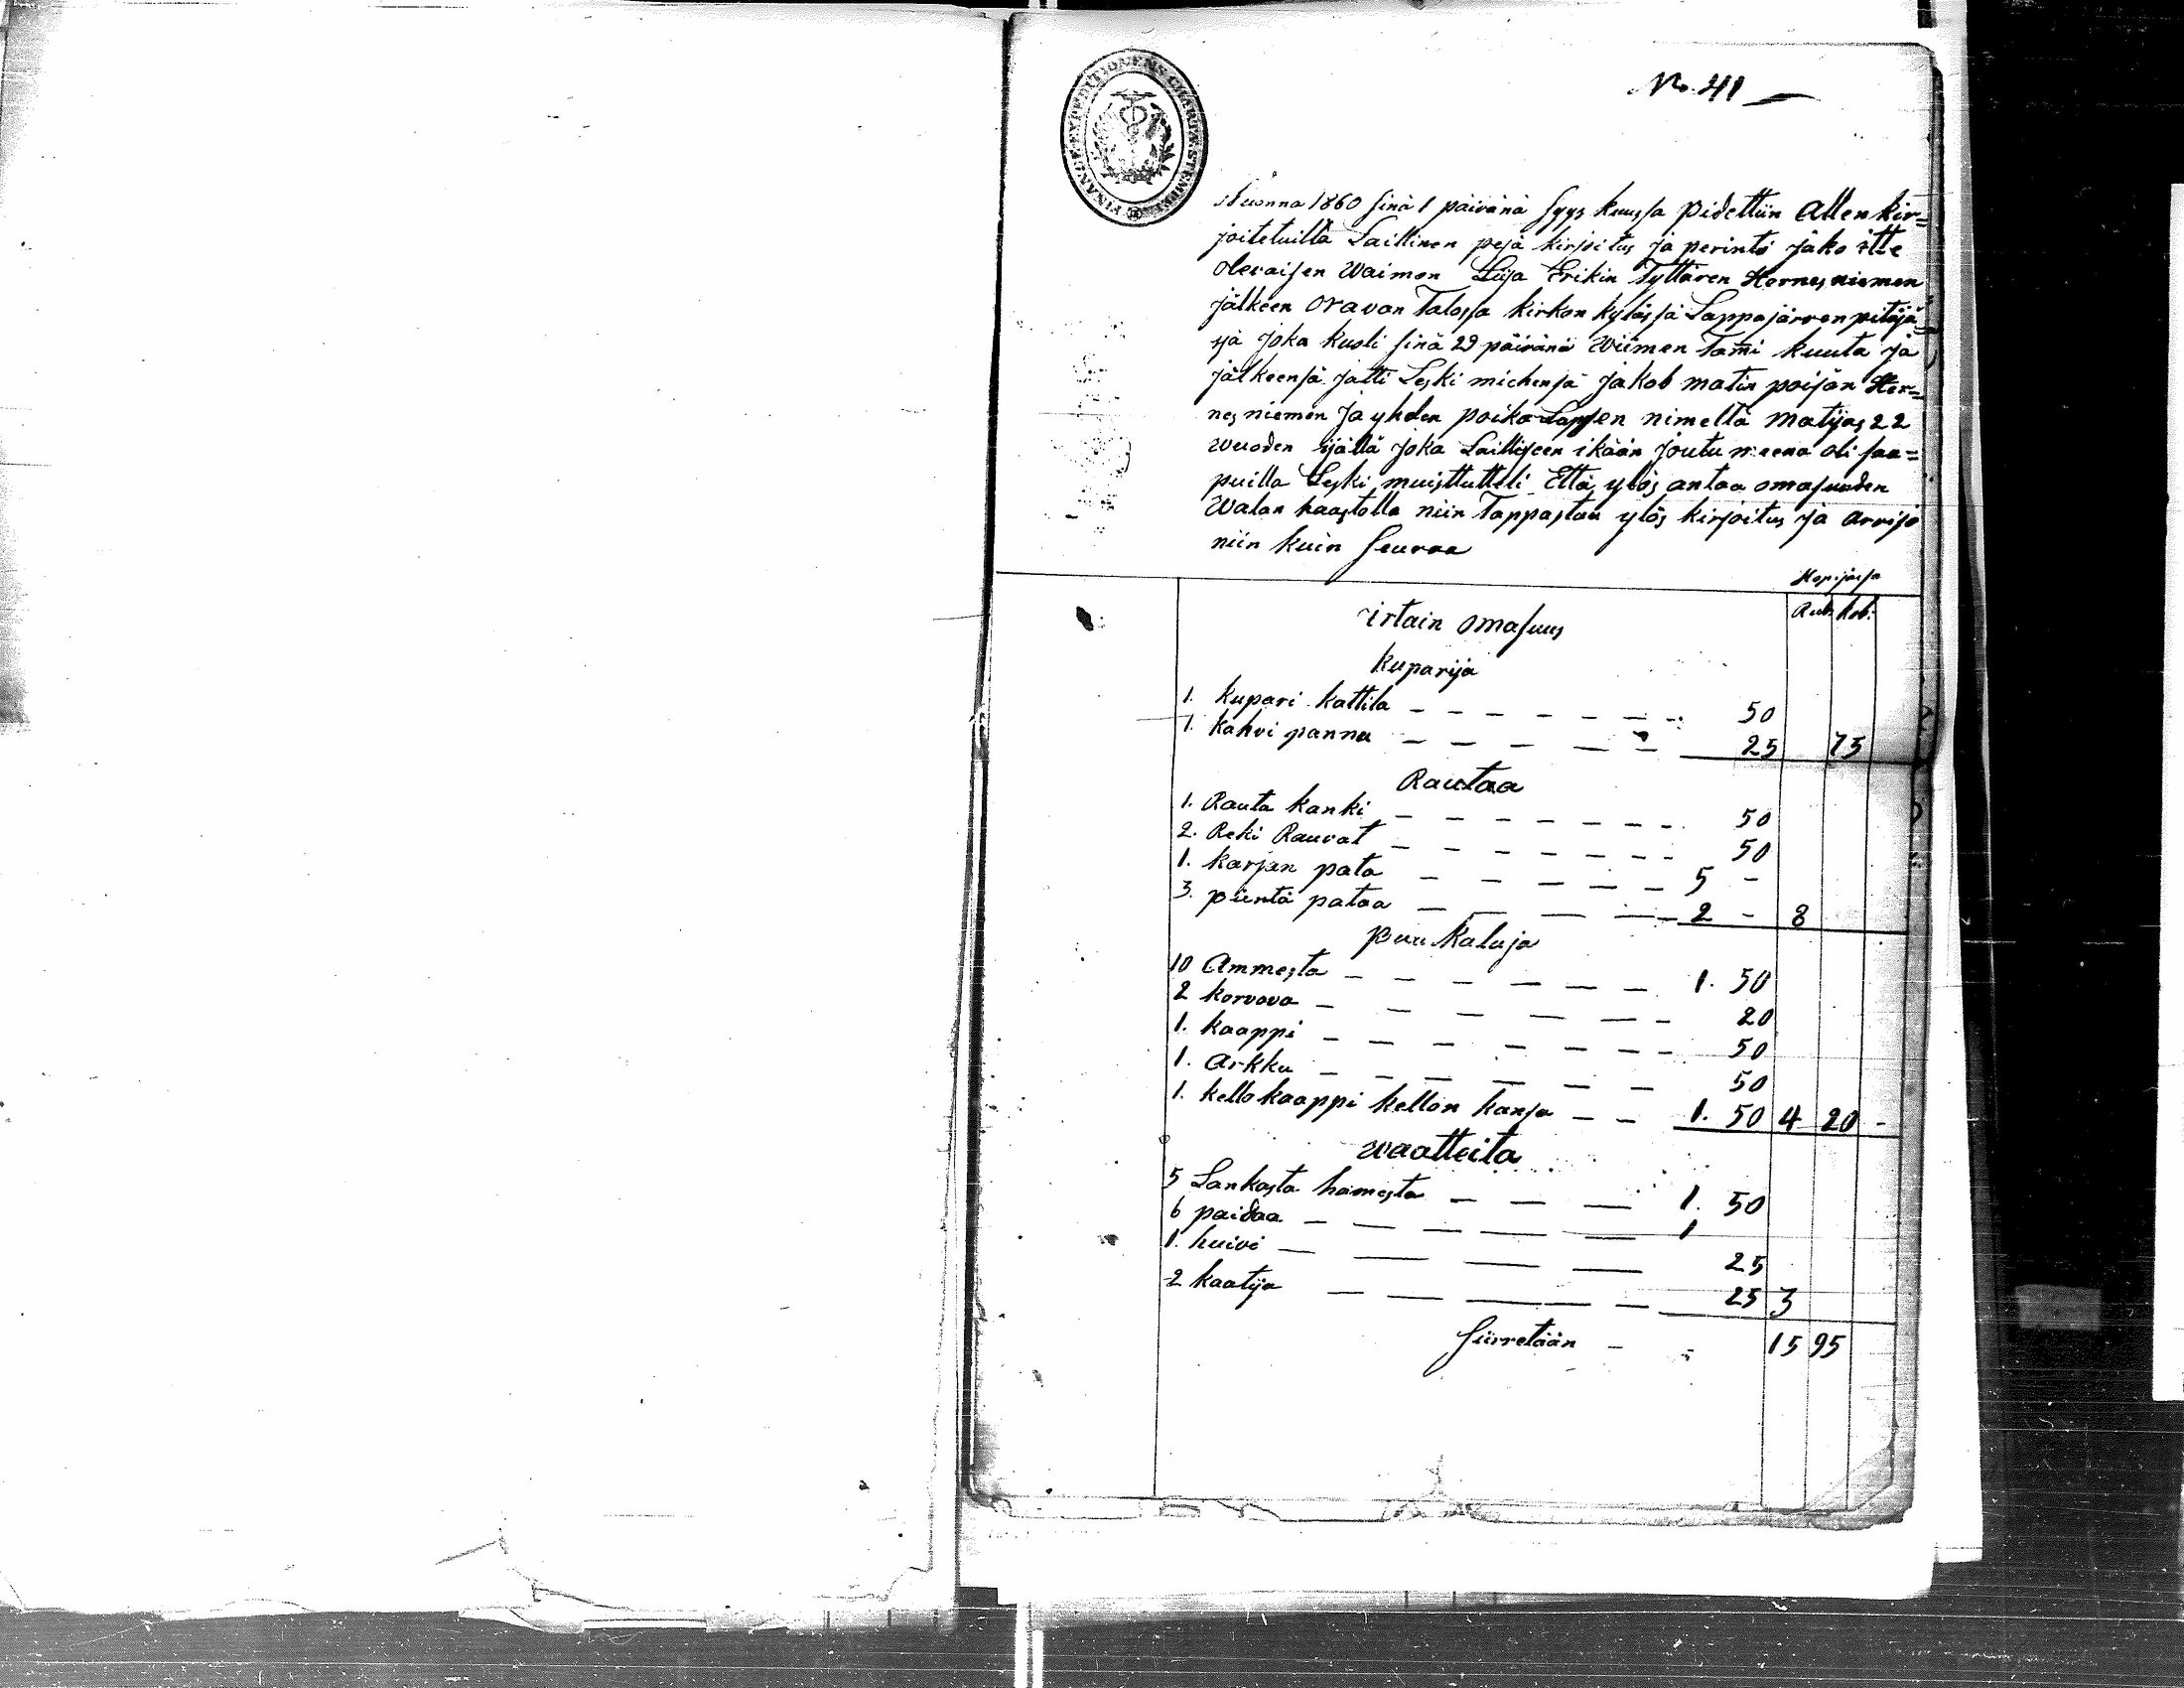 No. 41
FINANCE-EXPEDITIONENS CHARTÆ-STEMPEL
Wuonna 1860 sinä 1 päivänä syys kuussa pidettiin Allen kir=
joitetuilta Laillinen pesä kirjoitus ja perintö jako itte
olevaisen Waimon Liisa Erikin Tyttären Hernesniemen
jälkeen oravan Talossa kirkon kylässä Lappajärven pitäjä=
sä joka kuoli sinä 29 päivänä Wiimen Tami kuuta ja
jälkeensä jätti Leski miehensä jakob matin poijan Her=
nesniemen ja yhden poika Lapsen nimeltä matijas 22
wuoden ijällä joka Lailliseen ikään joutuneena oli saa=
puilla Leski muistutteli Että ylös antaa omasuuden
Walan haastolla niin Tappastuu ylös kirjoitus ja arvijo
niin kuin seuraa
Hopijassa
Rub. kob.
irtain omasuus
kuparija
1. kupari kattila — — — — — — 50
1. kahvi pannu — — — — — 25 75
Rautaa
1. Rauta kanki — — — — — — — 50
2. Reki Rauvat — — — — — — — 50
1. karjan pata — — — — — 5 -
3. pientä pataa — — — — 2 - 8
puu kaluja
10 Ammesta — — — — — — 1. 50
2 korvova — — — — — — 20
1. kaappi — — — — — — — 50
1. Arkku — — — — — — — 50
1. kello kaappi kellon kansa — — 1. 50 4 20 -
waatteita
5 Lankasta hamesta — — — 1. 50
6 paidaa — — — — — — 1
1. huivi — — — — 25
2 kaatija — — — — — 25 3
siirretään — - 15 95